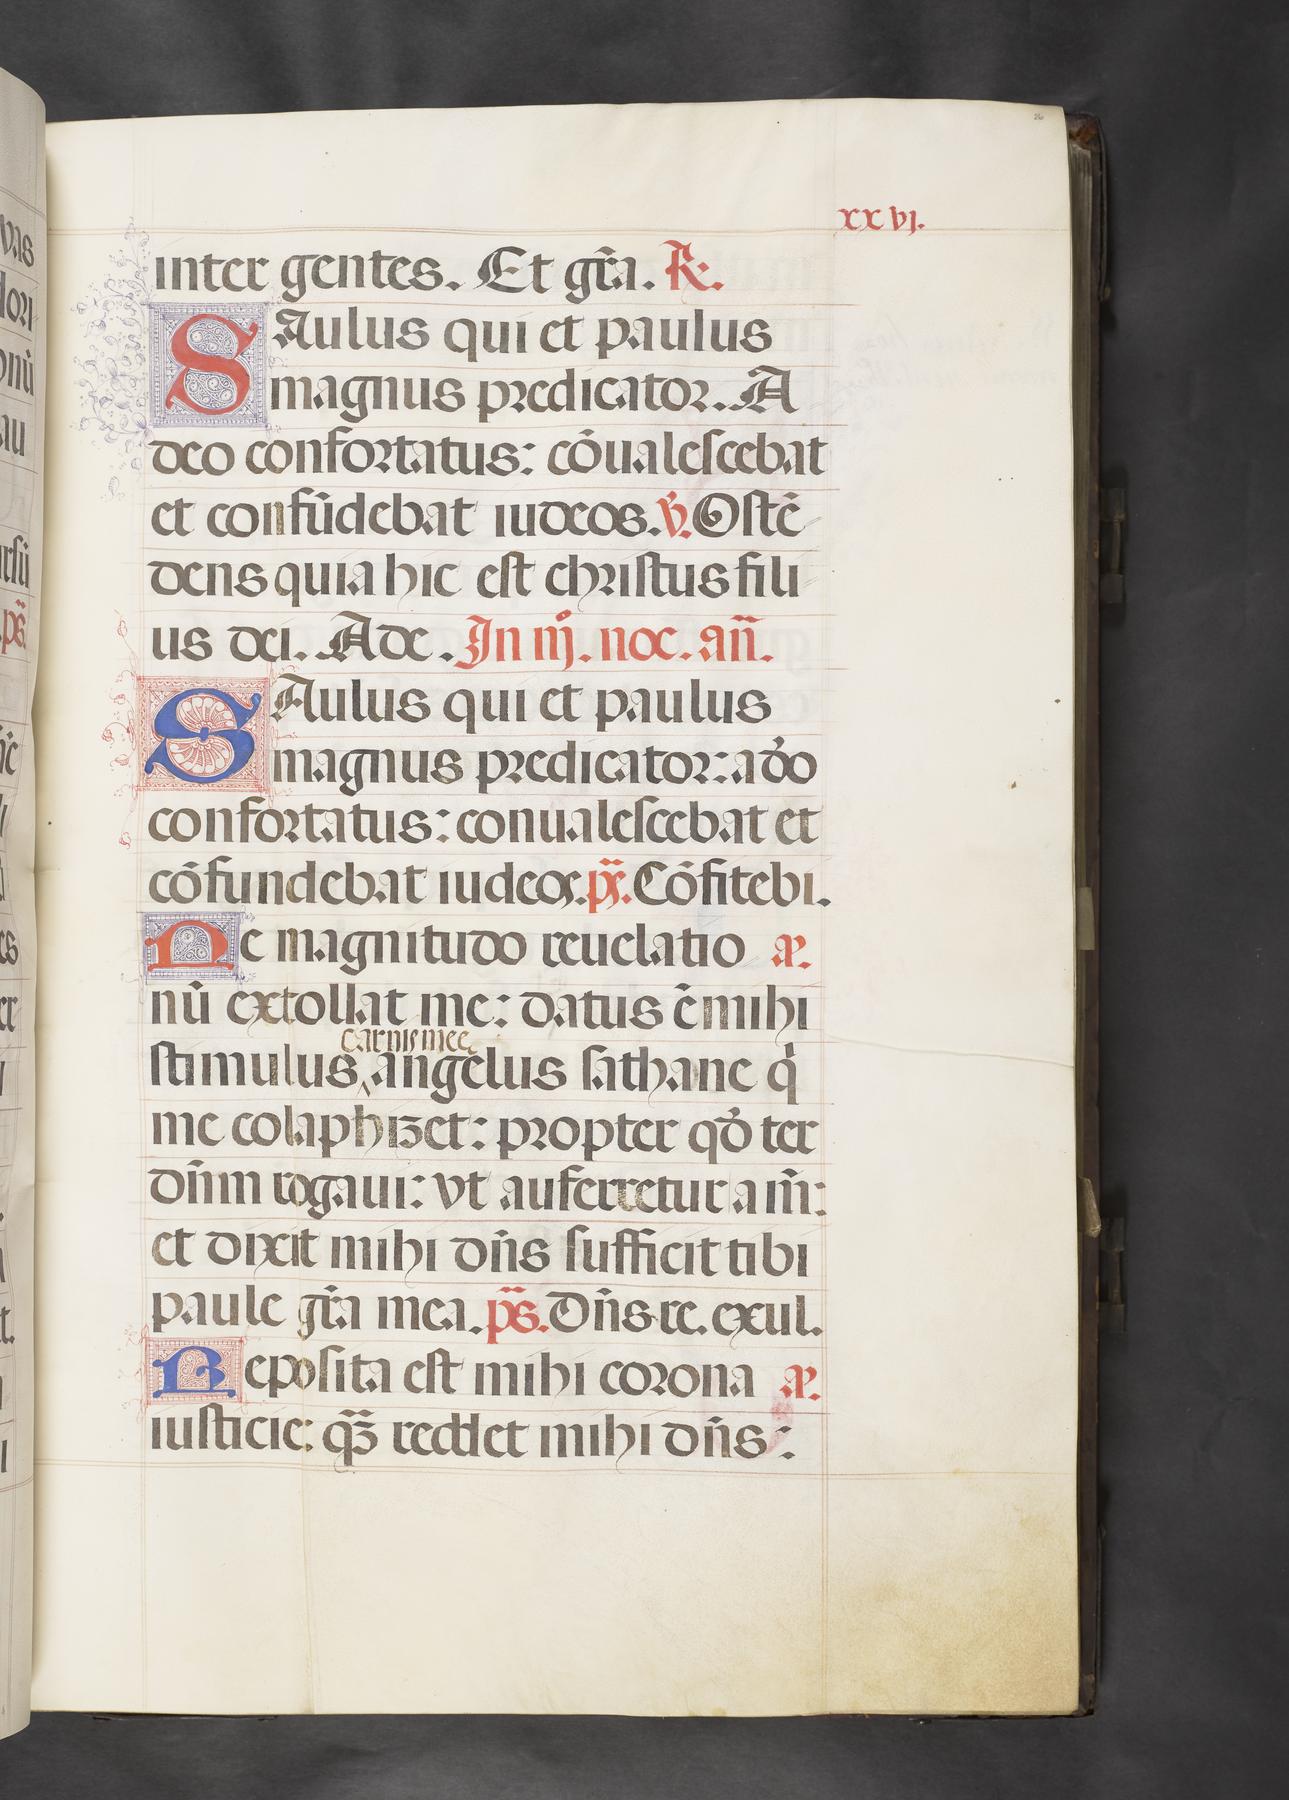 xxvj.
inter gentes. Et gr̄a. ℟.
SAulus qui et paulus
magnus predicator. A
deo confortatus: cōualescebat
et confūdebat iudeos. ℣. Ostē
dens quia hic est christus fili
us dei. Ade. In iij. noc. an̄.
SAulus qui et paulus
magnus predicator: ad̄o
confortatus: conualescebat et
cōfundebat iudeos. ps̄. Cōfitebi.
Ne magnitudo reuelatio a.
nū extollat me: datus ē mihi
carnis mee
stimulus angelus sathane q̇
me colaphizet: propter qd̄ ter
dn̄m rogaui: vt auferretur a m̄:
et dixit mihi dn̄s sufficit tibi
paule gr̄a mea. ps̄. Dn̄s re. exul.
Reposita est mihi corona a.
iusticie: quā reddet mihi dn̄s: